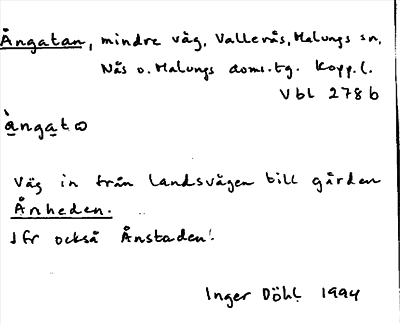 Ångatan, mindre väg, Vallerås, Malungs sn,
Nås o. Malungs doms.tg. Kopp.l.
Vbl 278b
Väg in från landsvägen till gården
Årheden.
Jfr också Ånstaden!
Inger Döhl 1994